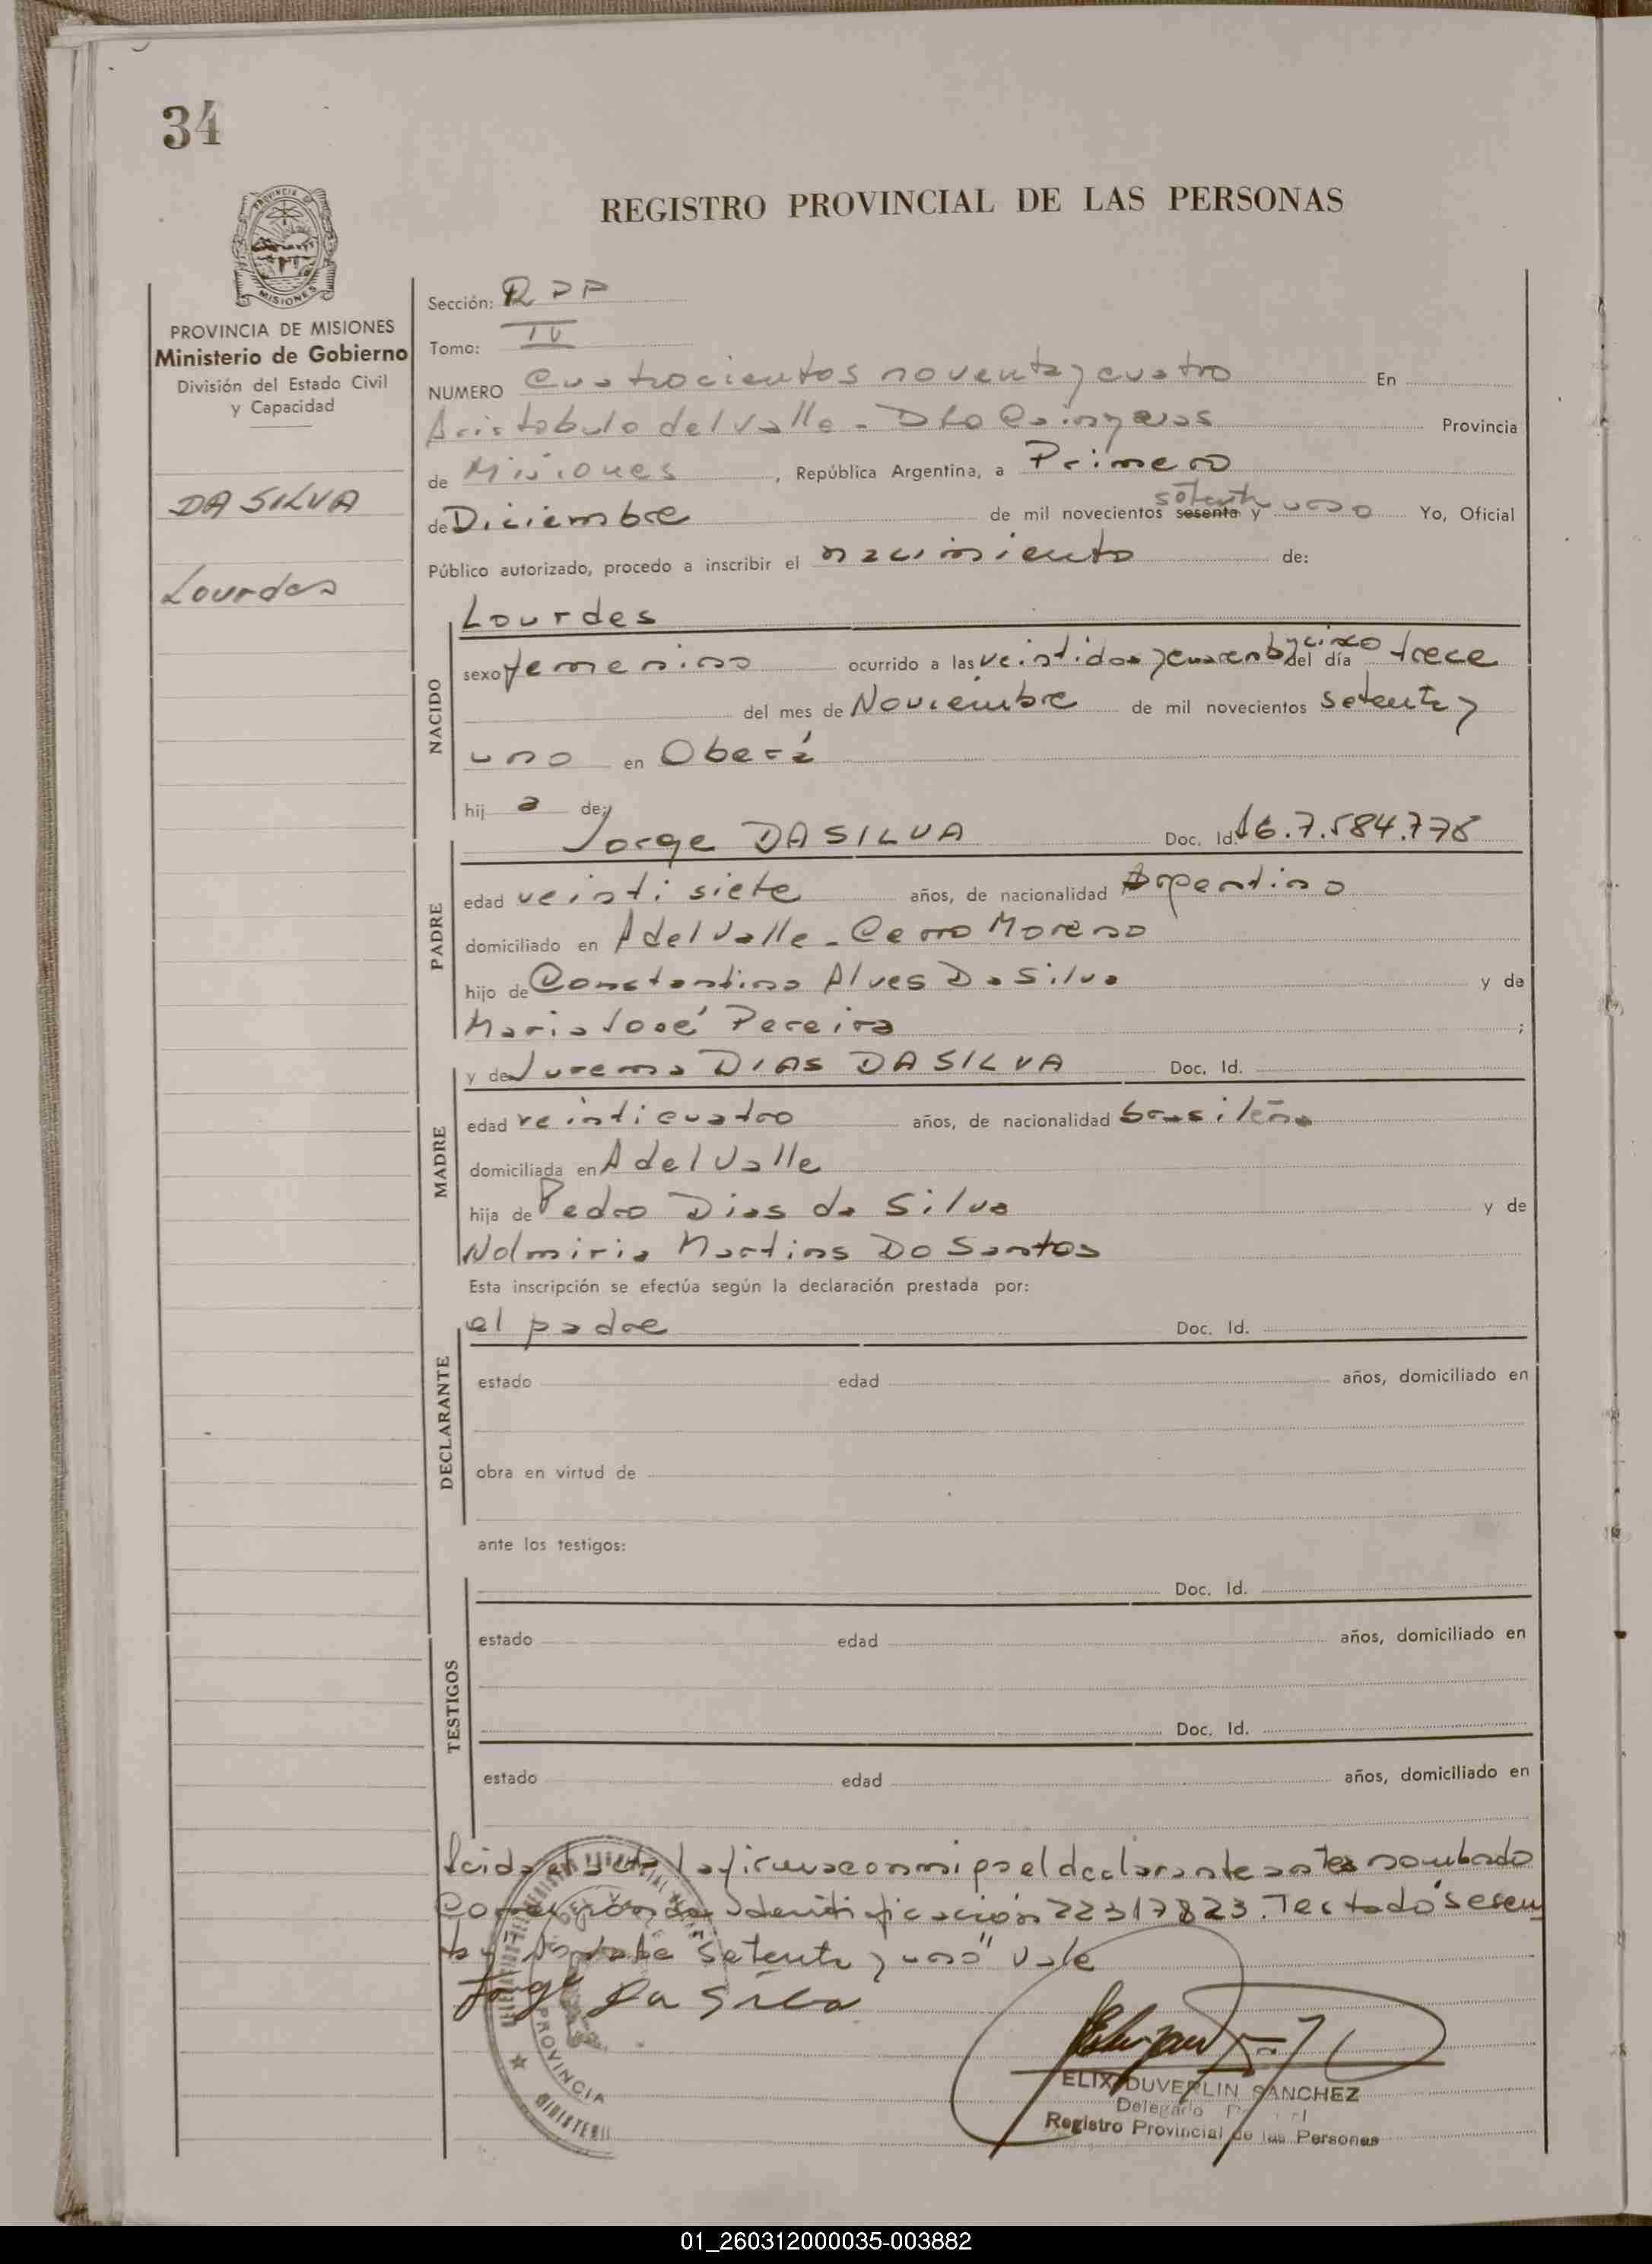 34
REGISTRO PROVINCIAL DE LAS PERSONAS
PROVINCIA
MISIONES
PROVINCIA DE MISIONES
Ministerio de Gobierno
División del Estado Civil
y Capacidad
DA SILVA
Lourdes
Sección: RPP
Tomo: IV
NUMERO cuatrocientos noventa y cuatro En
Aristobulo del Valle - Dto Cainguas Provincia
de Misiones, República Argentina, a Primero
de Diciembre de mil novecientos sesenta setenta y uno Yo, Oficial
Público autorizado, procedo a inscribir el nacimiento de:
NACIDO
Lourdes
sexo femenino ocurrido a las veintidos y cuarenta y cinco del día trece
del mes de Noviembre de mil novecientos setenta y
uno en Oberá
hija de:
PADRE
Jorge DA SILVA Doc. Id. 7.584.778
edad veintisiete años, de nacionalidad Argentino
domiciliado en A del Valle - Cerro Moreno
hijo de Constantino Alves Da Silva y de
Maria José Pereira ;
MADRE
y de Jurema DIAS DA SILVA Doc. Id.
edad veinticuatro años, de nacionalidad brasileña
domiciliada en A del Valle
hija de Pedro Dias da Silva y de
Martins Do Santos
Esta inscripción se efectúa según la declaración prestada por:
DECLARANTE
el padre Doc. Id.
estado edad años, domiciliado en
obra en virtud de
ante los testigos:
TESTIGOS
Doc. Id.
estado edad años, domiciliado en
Doc. Id.
estado edad años, domiciliado en
Leida el acta la firma conmigo el declarante antes nombrado
Identificación 22317823. Testado "sesen
ta y" setenta y uno" Vale
Jorge Da Silva
PROVINCIA
MINISTERI
ELIX DUVERLIN SANCHEZ
Delegado
Registro Provincial de las Personas
01_260312000035-003882